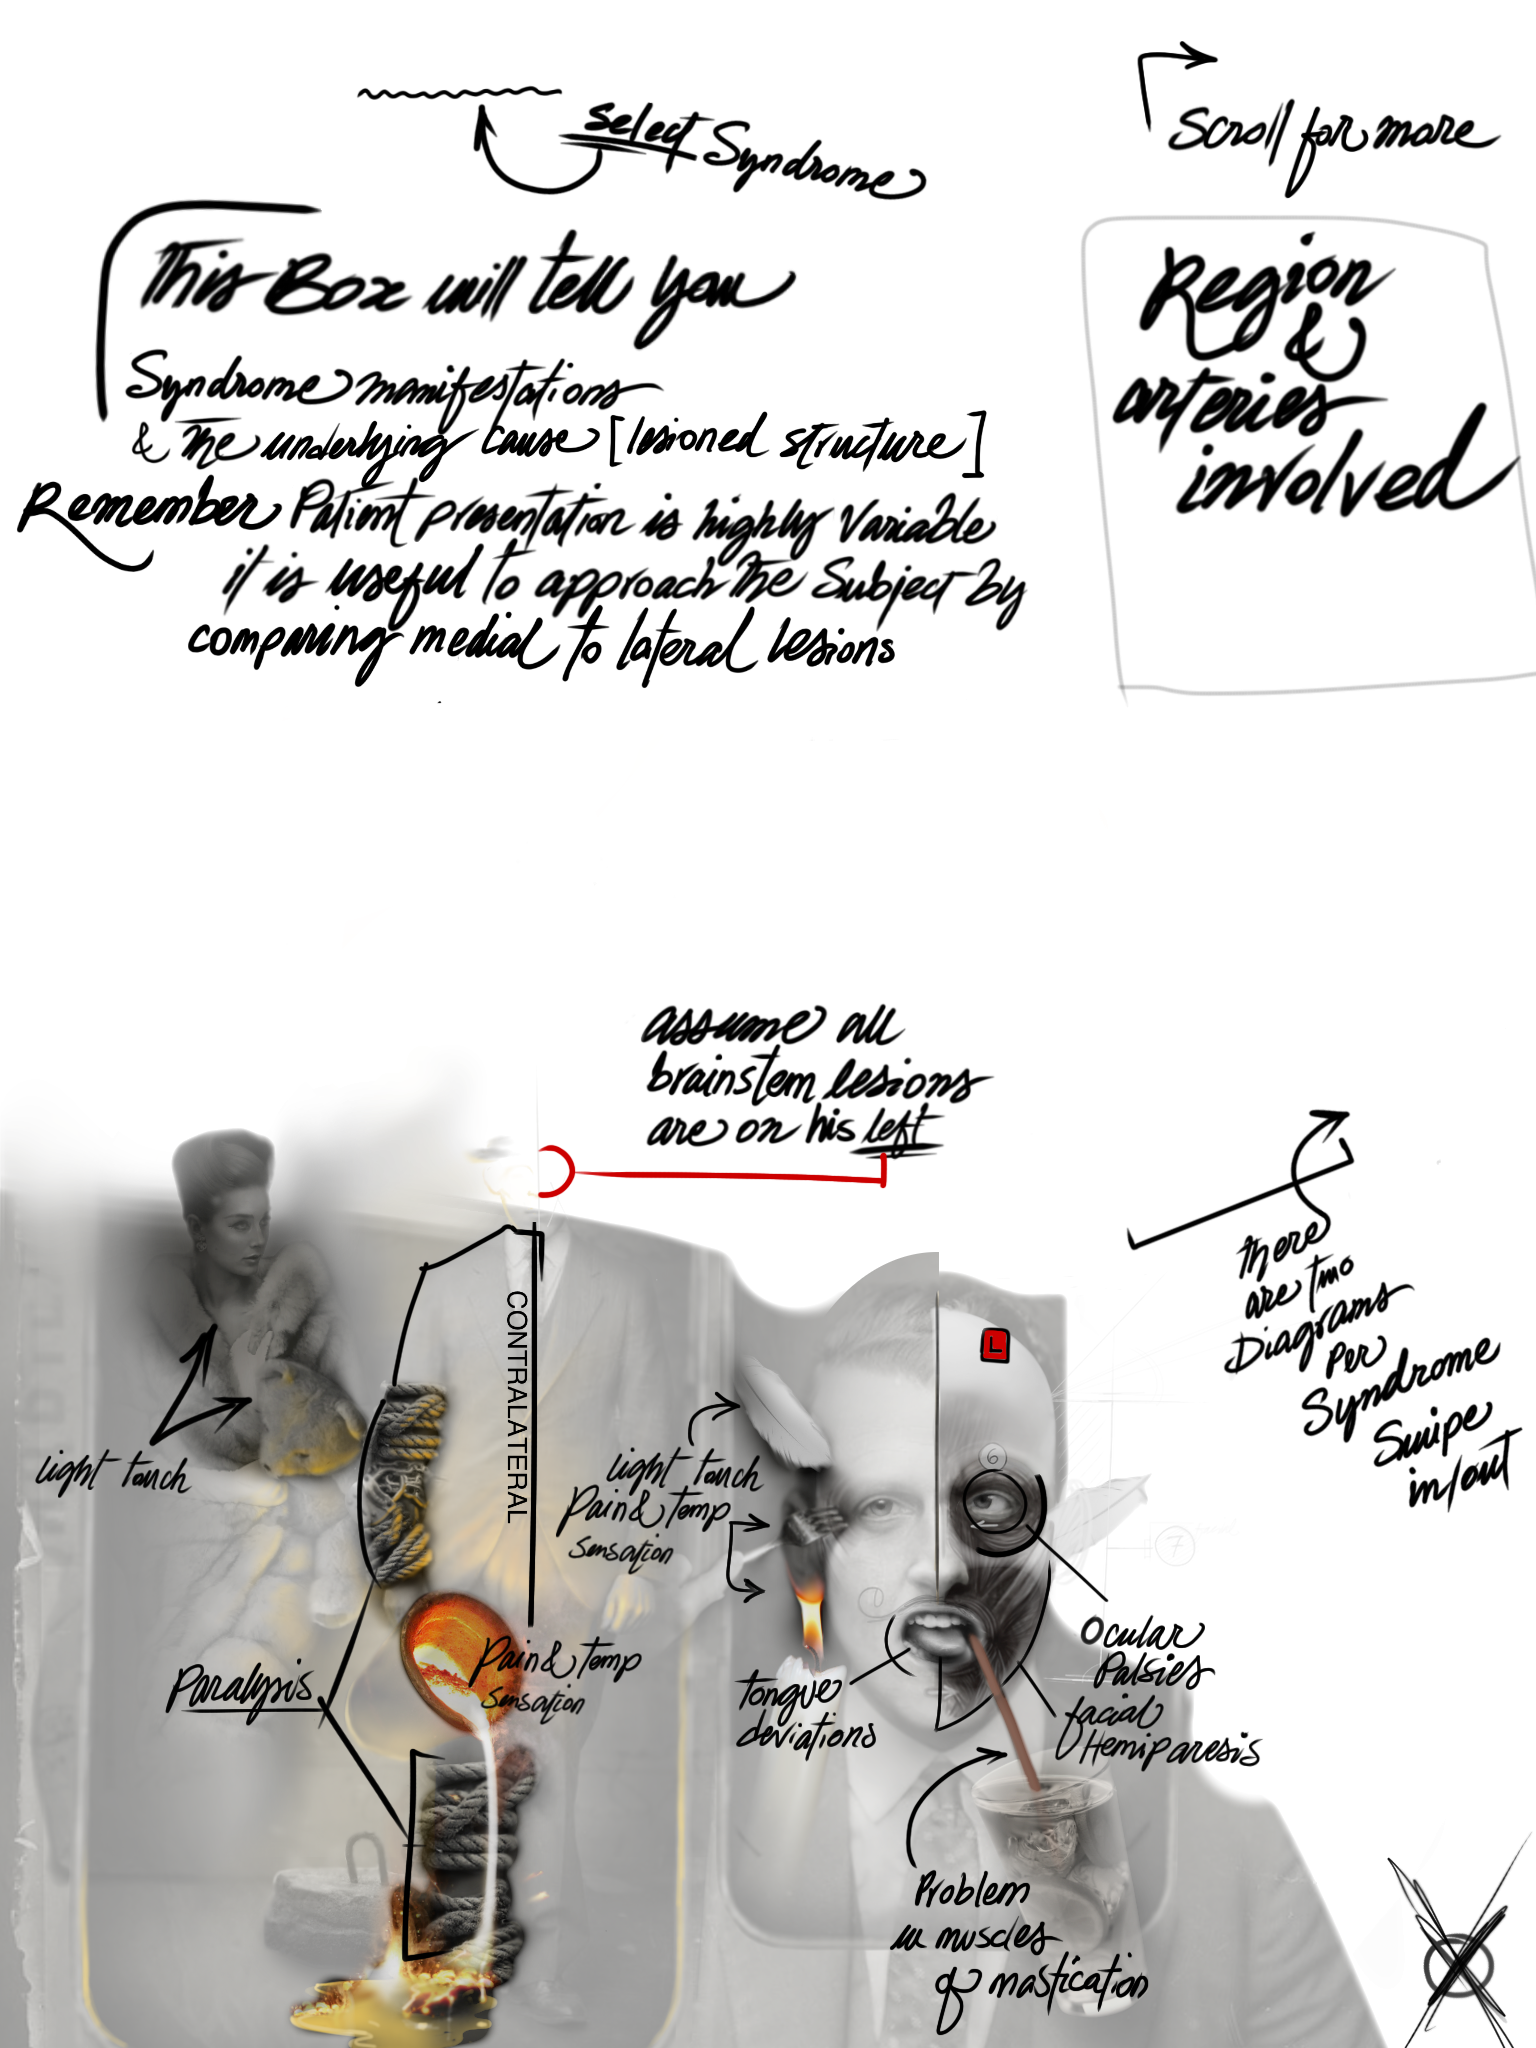 Select Syndrome
Scroll for more
This Box will tell you
Syndrome manifestations
& the underlying cause [lesioned structure]
Remember Patient presentation is highly Variable
it is useful to approach the Subject by
comparing medial to lateral lesions
Region
&
arteries
involved
assume all
brainstem lesions
are on his left
there
are two
Diagrams
Per
Syndrome
Swipe
in/out
CONTRALATERAL
L
6
7
light touch
light touch
Pain & Temp
Sensation
Paralysis
Pain & Temp
Sensation
tongue
deviations
Ocular
Palsies
facial
Hemiparesis
Problem
in muscles
of mastication